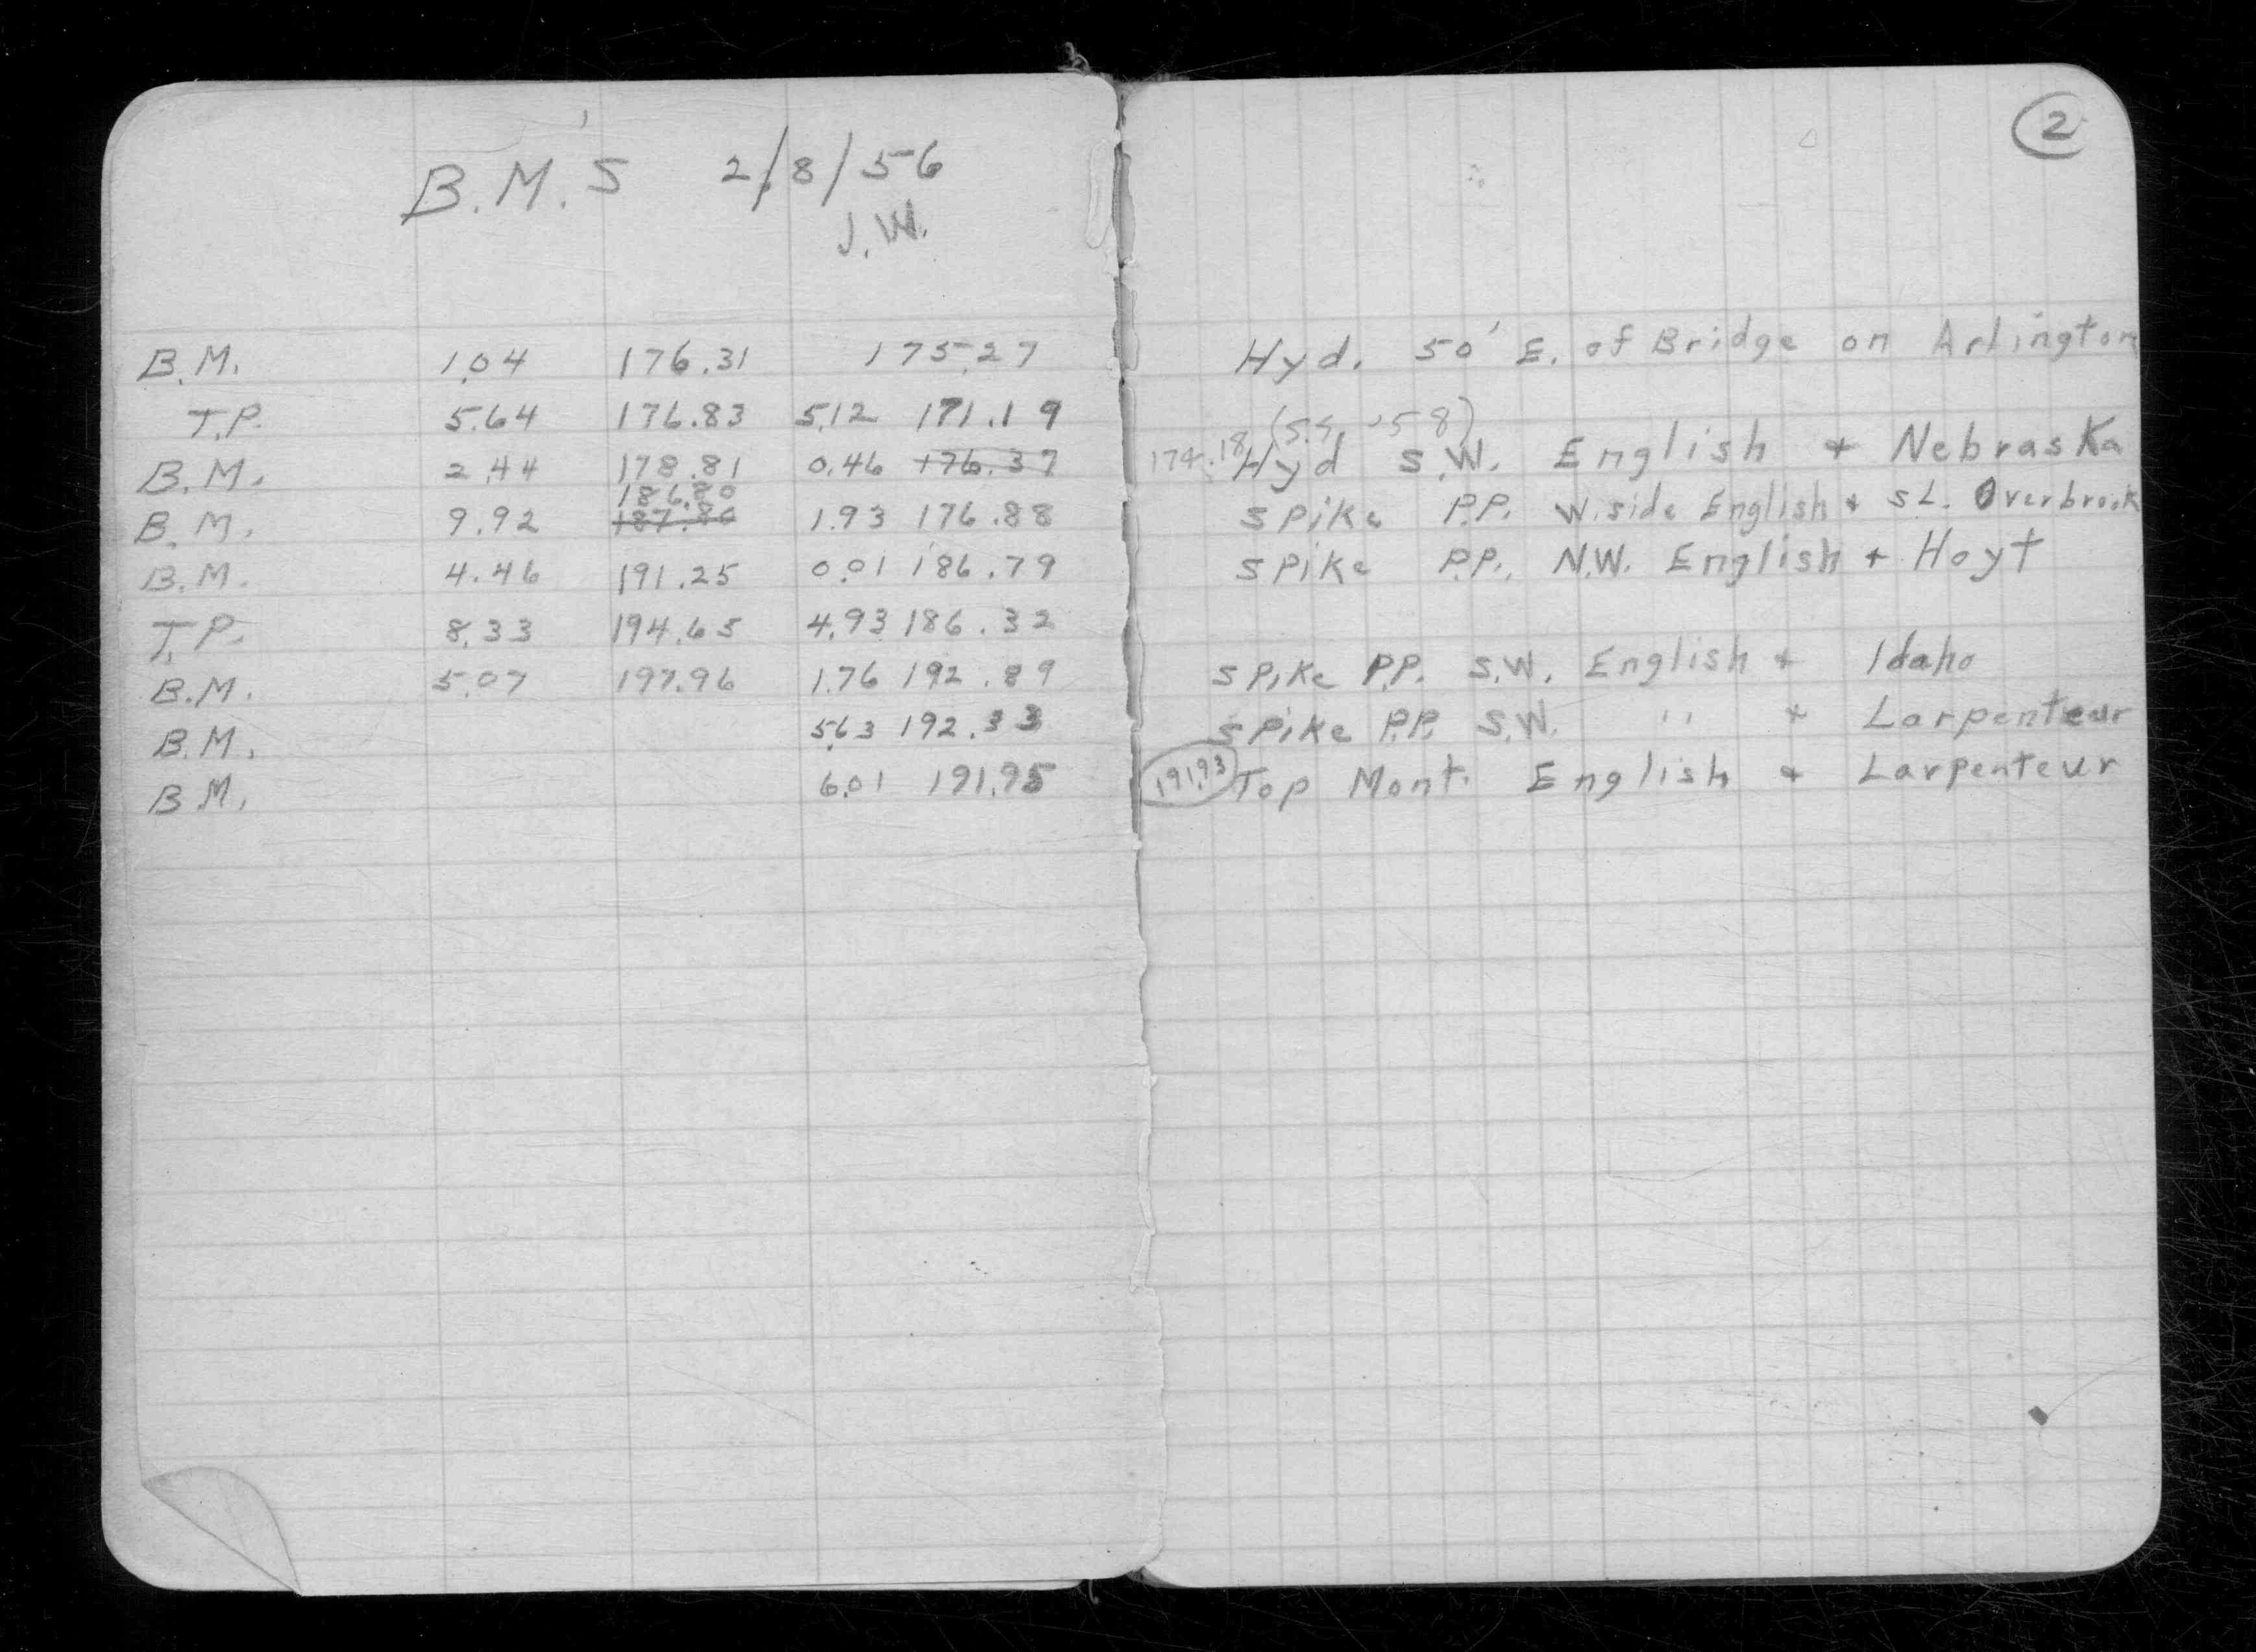 2
B.M.'S 2/8/56
J.W.
B.M. 1.04 176.31 175.27 Hyd. 50' E. of Bridge on Arlington
T.P. 5.64 176.83 5.12 171.19
174.18 (S.S. '58)
B.M. 2.44 178.81 0.46 176.37 Hyd S.W. English + Nebraska
186.80
B.M. 9.92 187.80 1.93 176.88 Spike P.P. W. side English + S.L. Overbrook
B.M. 4.46 191.25 0.01 186.79 Spike P.P. N.W. English + Hoyt
T.P. 8.33 194.65 4.93 186.32
B.M. 5.07 197.96 1.76 192.89 Spike P.P. S.W. English + Idaho
B.M. 5.63 192.33 Spike P.P. S.W. " + Larpenteur
B.M. 6.01 191.95 191.93 Top Mont. English + Larpenteur